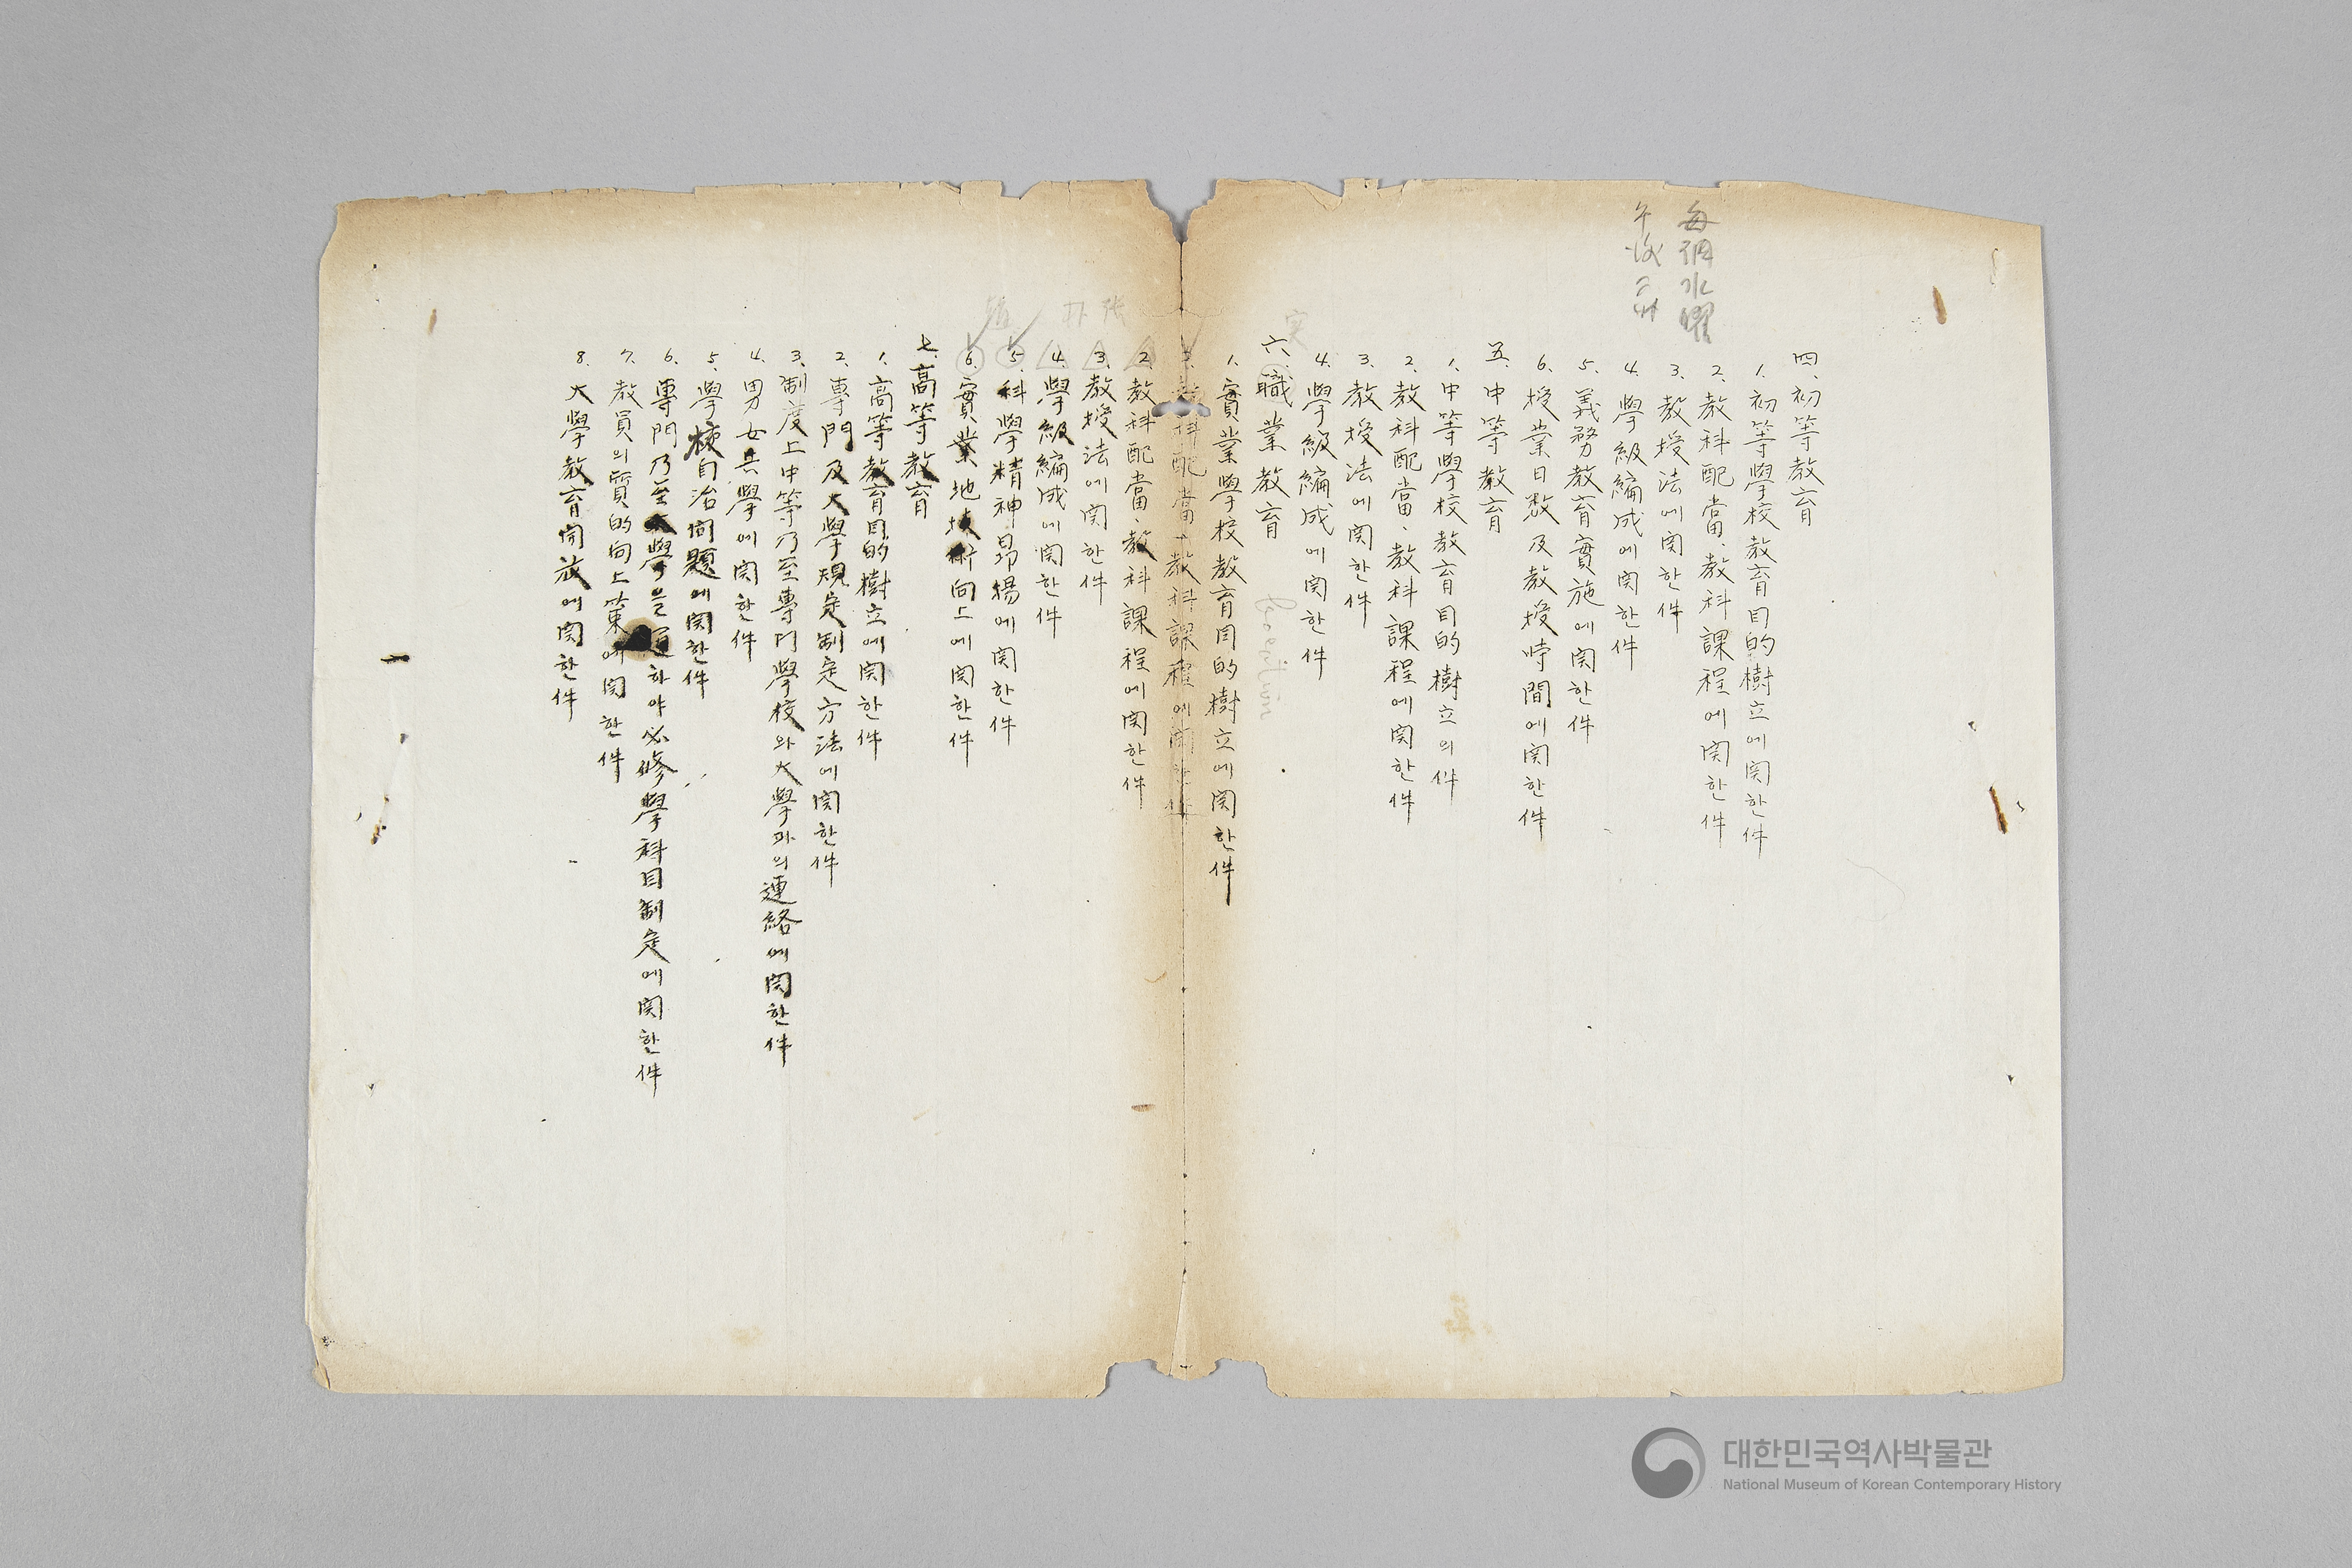 每週水曜
午後二時
四. 初等教育
1. 初等學校教育目的樹立에関한件
2. 教科配當、教科課程에関한件
3. 教授法에関한件
4. 學級編成에関한件
5. 義務教育實施에関한件
6. 授業日数及教授時間에関한件
五. 中等教育
1. 中等學校教育目的樹立의件
2. 教科配當、教科課程에関한件
3. 教授法에関한件
4. 學級編成에関한件
実
六. 職業教育
1. 實業學校教育目的樹立에関한件
2. 教科配當、教科課程에関한件
2. 教科配當、教科課程에関한件
3. 教授法에関한件
4. 學級編成에関한件
5. 科學精神昻揚에関한件
6. 實業地技術向上에関한件
七. 高等教育
1. 高等教育目的樹立에関한件
2. 專門及大學規定制定方法에関한件
3. 制度上中等乃至專門學校와大學과의連絡에関한件
4. 男女共學에関한件
5. 學校自治問題에関한件
6. 專門乃至大學을通하야必修學科目制定에関한件
7. 教員의質的向上策에関한件
8. 大學教育開放에関한件
대한민국역사박물관
National Museum of Korean Contemporary History